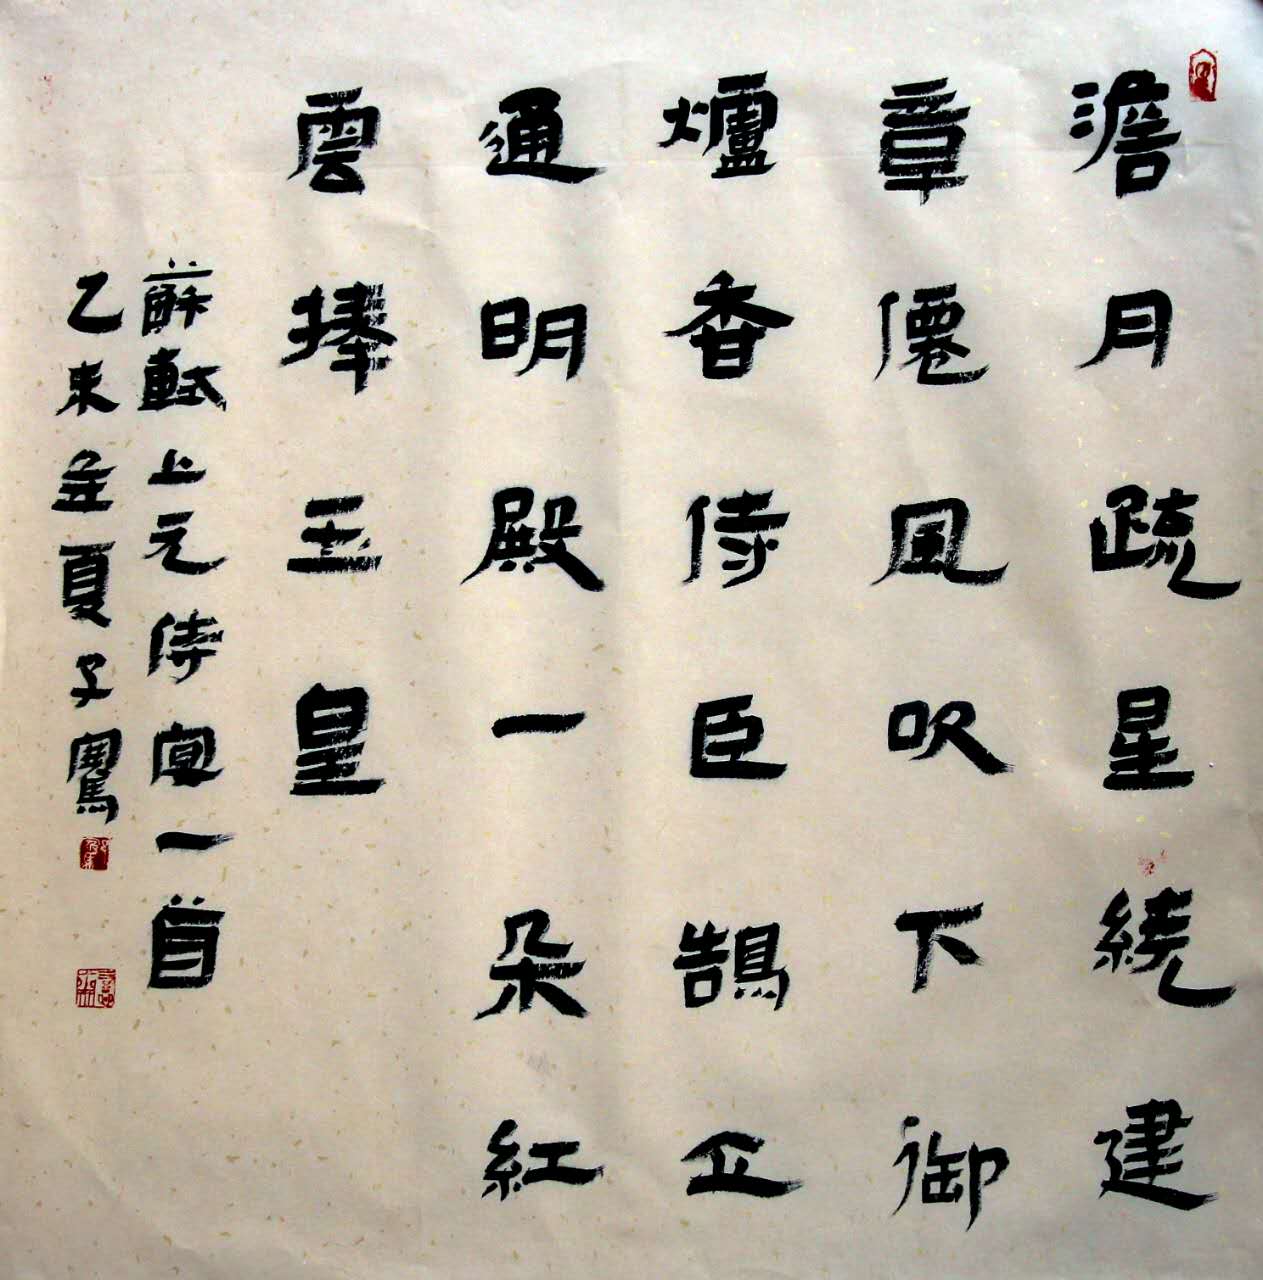 澹月疏星繞建
章僊風吹下御
爐香侍臣鵠立
通明殿一朵紅
雲捧玉皇
蘇軾上元侍宴一首
乙未孟夏子